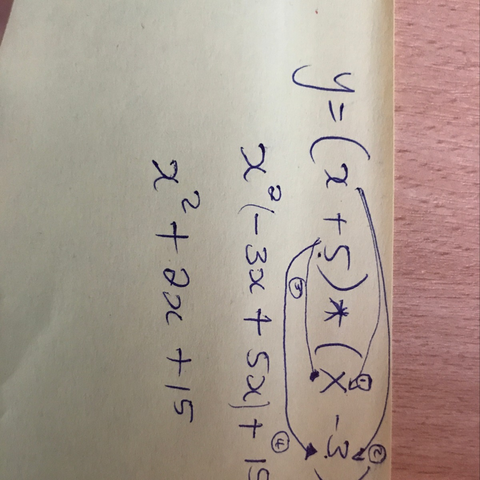 y = (x + 5) * (x - 3)
x² (- 3x + 5x) + 15
x² + 2x + 15
① ② ③ ④